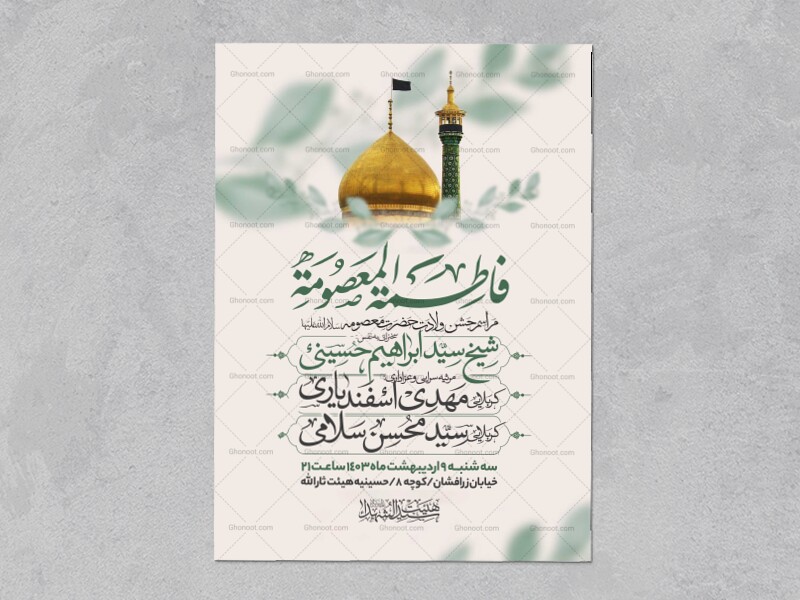 فاطمة المعصومة
مراسم جشن ولادت حضرت معصومه سلام الله علیها
سخنرانی به نفس
شیخ سید ابراهیم حسینی
مرثیه سرایی و عزاداری
کربلایی مهدی اسفندیاری
کربلایی سید محسن سلامی
سه شنبه ۹ اردیبهشت ماه ۱۴۰۳ ساعت ۲۱
خیابان زرافشان / کوچه ۸ / حسینیه هیئت ثارالله
هیئت سیدالشهدا
Ghonoot.com